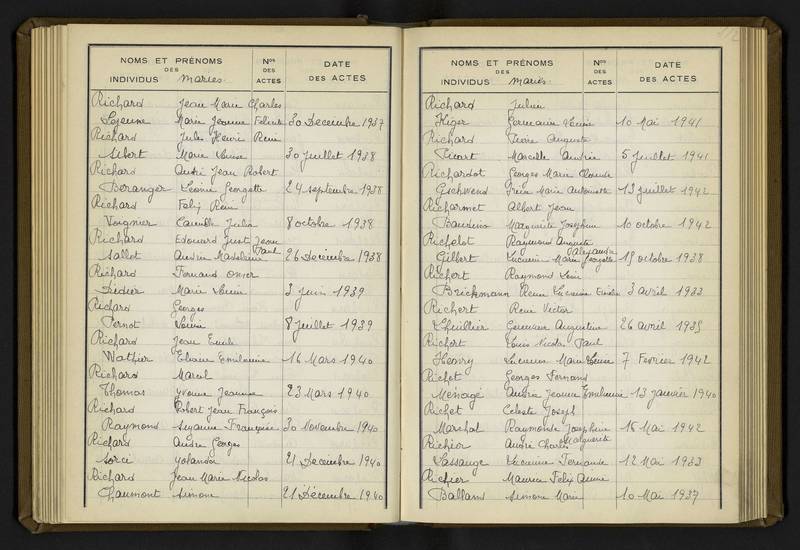 NOMS ET PRÉNOMS
DES
INDIVIDUS Mariés
Nos
DES
ACTES
DATE
DES ACTES
Richard Jean Marie Charles
Lejeune Marie Jeanne 30 Decembre 1937
Richard Jules Henri René
Aubert Marie Louise 30 Juillet 1938
Richard André Jean Robert
Beranger Léonie Georgette 24 septembre 1938
Richard Felix René
Voignier Camille Julia 8 octobre 1938
Richard Edouard Just Jean
Paul
Sallet Andrée Madeleine 26 Décembre 1938
Richard Fernand
Didier Marie Louise 3 Juin 1939
Richard Georges
Pernot Louise 8 Juillet 1939
Richard Jean Emile
Wathier Eliane Emilienne 16 Mars 1940
Richard Marcel
Thomas Yvonne Jeanne 23 Mars 1940
Richard Robert Jean François
Raymond Suzanne Françoise 30 Novembre 1940
Richard André Georges
Sorci Yolanda 21 Decembre 1940
Richard Jean Marie Nicolas
Chaumont Simone 21 Décembre 1940
NOMS ET PRÉNOMS
DES
INDIVIDUS Mariés
Nos
DES
ACTES
DATE
DES ACTES
Richard Julien
Germaine Louise 10 Mai 1941
Richard Pierre Auguste
Marcelle Andrée 5 Juillet 1941
Richardot Georges Marie Claude
Gschwend Marie Antoinette 13 Juillet 1942
Richarmet Albert Jean
Marguerite Joséphine 10 octobre 1942
Richelot Raymond Auguste
Alexandre
Gilbert Lucienne Marie Georgette 15 octobre 1938
Richert Raymond Louis
Brickmann Renée Lucienne 3 avril 1933
Richert René Victor
Lhuillier Germaine Augustine 26 avril 1935
Richert Louis Nicolas Paul
Henry Lucienne Marie Louise 7 Fevrier 1942
Richet Georges Fernand
Menagé Andrée Jeanne Emilienne 13 Janvier 1940
Richet Celeste Joseph
Marchal Raymonde Joséphine 16 Mai 1942
Marguerite
Richier André Charles
Lassauge Lucienne Fernande 12 Mai 1933
Richier Maurice Felix
Balland Simone Marie 10 Mai 1937